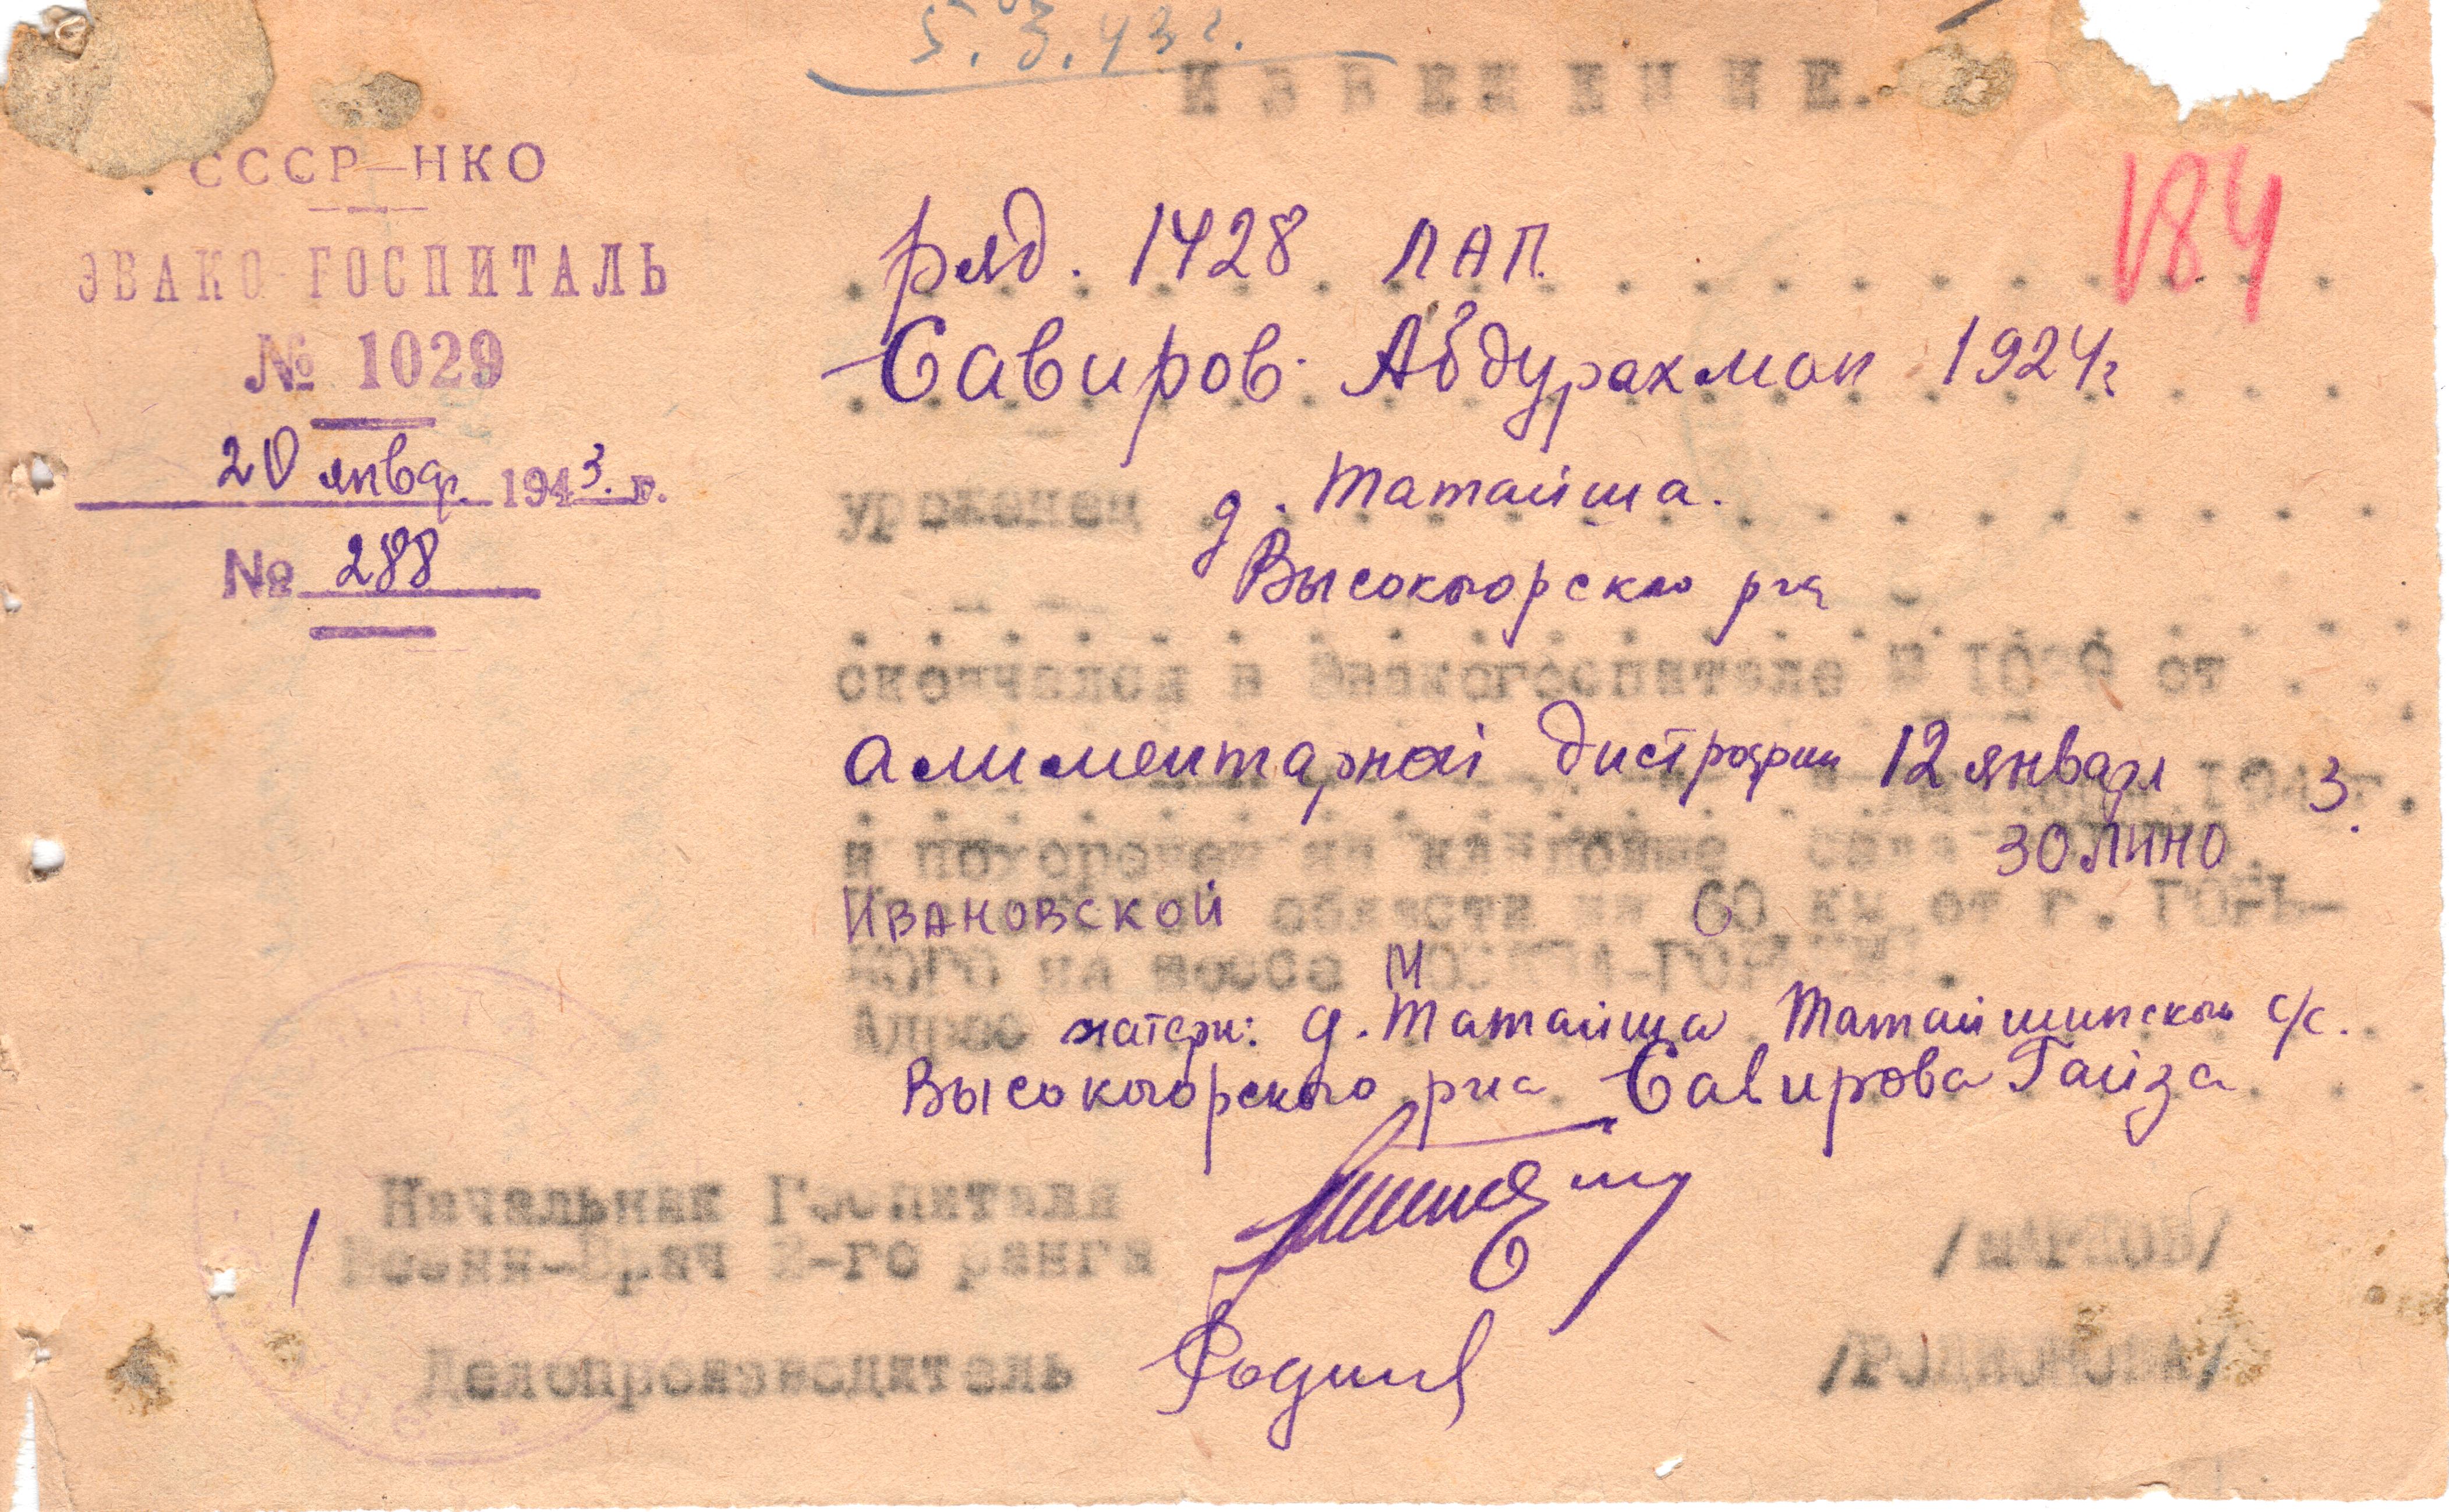 5.3.43г.
ИЗВЕЩЕНИЕ.
184
СССР—НКО
ЭВАКО-ГОСПИТАЛЬ
№ 1029
20 январ. 1943. г.
№ 288
ряд. 1428 ЛАП.
Савиров Абдурахман 1924г
уроженец д. Татайша.
Высокогорского р-на
скончался в Эвакогоспитале № 1029 от
алиментарной дистрофии 12 января 1943 г.
и похоронен на кладбище села ЗОЛИНО
ИВАНОВСКОЙ области на 60 км от г. ГОРЬ-
КОГО на шоссе МОСКВА-ГОРЬКИЙ.
Адрес матери: д. Татайша Татайшинского с/с.
Высокогорского р-на Савирова Гайза
Начальник Госпиталя
Военн-Врач 2-го ранга /МАРКОВ/
Делопроизводитель Родион /РОДИОНОВА/